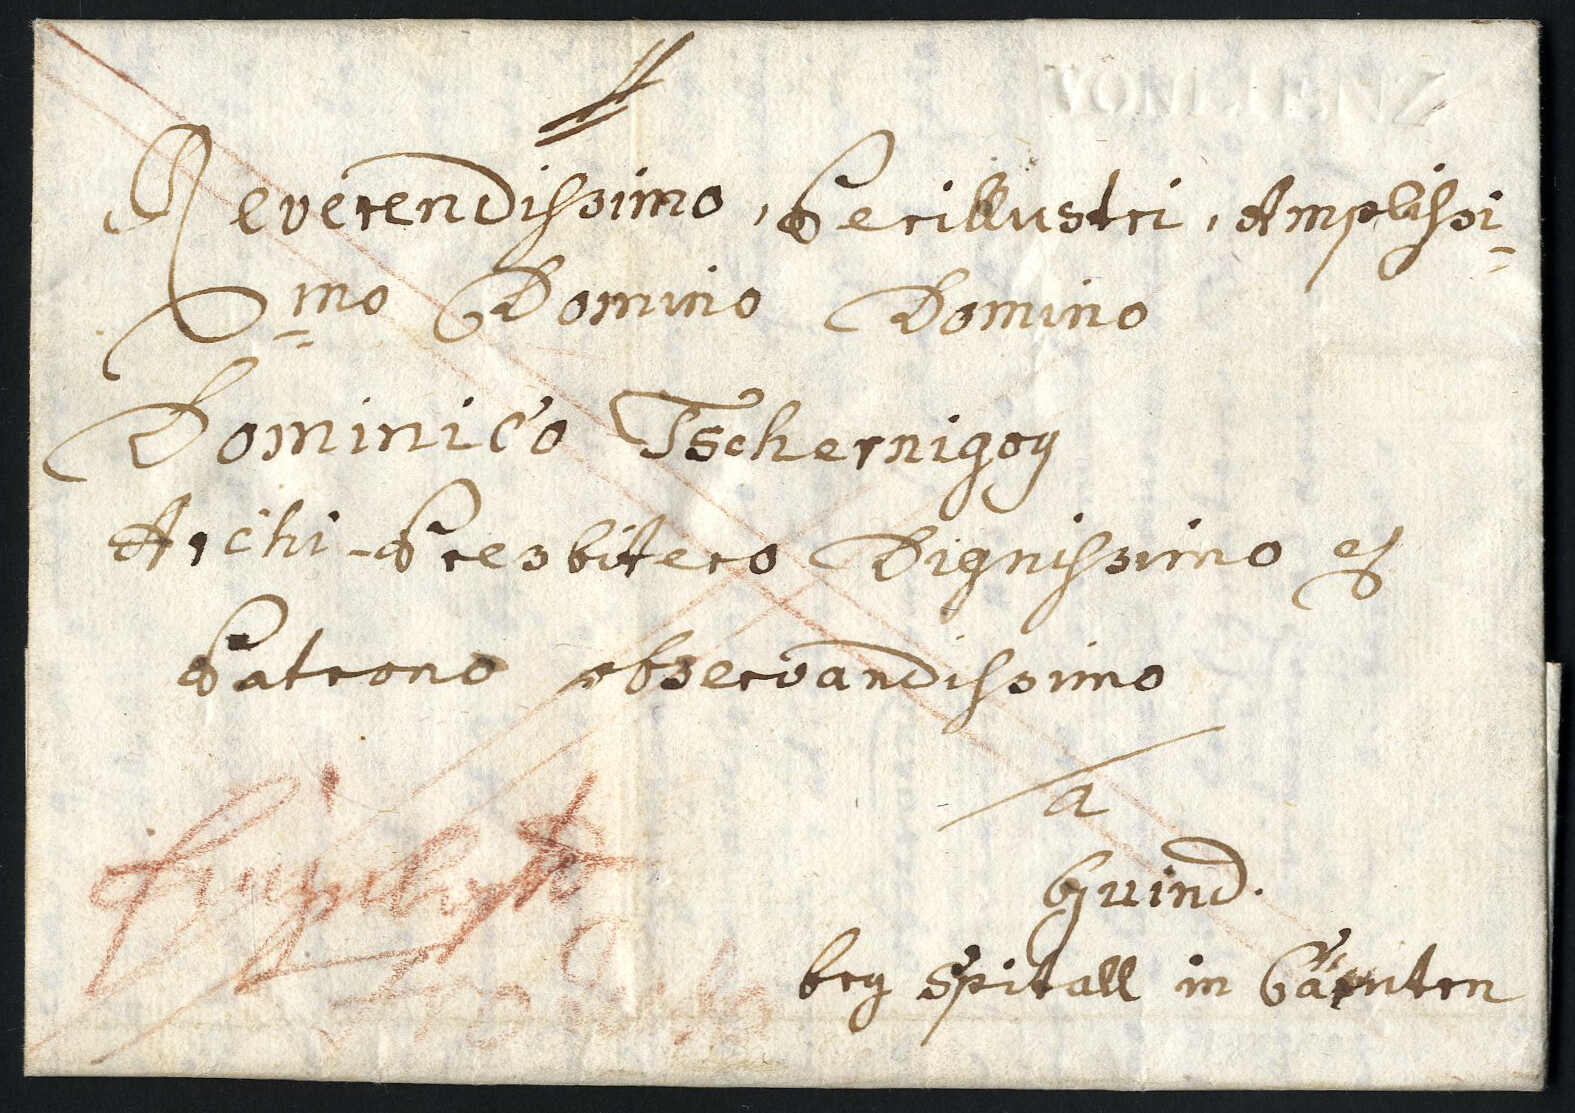 Reverendissimo, Perillustri, Amplissi=
=mo Domino Domino
Dominico Tschernigoy
Archi-Presbitero Dignissimo et
Patrono observandissimo
a
Gmind.
bey Spitall in Cärnten